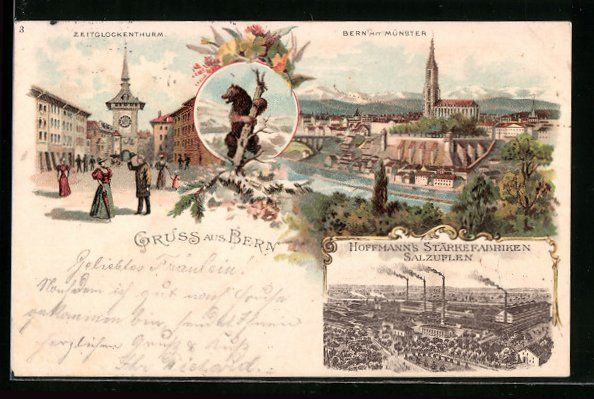 3
ZEITGLOCKENTHURM.
BERN MIT MÜNSTER
GRUSS AUS BERN
HOFFMANN'S STÄRKEFABRIKEN
SALZUFLEN
Geliebtes Fräulein!
Nachdem ich gut nach Hause
gekommen bin sendet Ihnen
herzlichen Gruss &
Ihr Richard